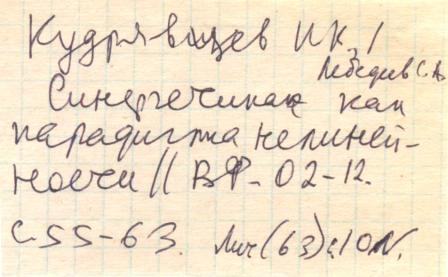 Кудрявцев И.К., /
Лебедев С.А.
Синергетика как
парадигма нелиней-
ности // ВФ- 02-12.
с. 55-63. Лит (63)